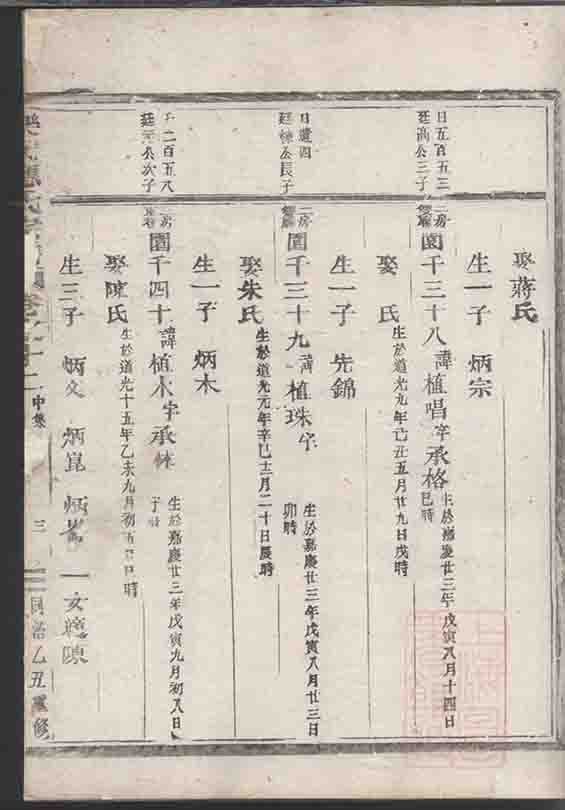 娶蔣氏
生一子 炳宗
日五百五三
廷高公三子
園千三十八 諱植唱 字承格
生於嘉慶廿三年戊寅八月十四日
巳時
娶 氏 生於道光九年己丑五月廿九日戌時
生一子 先錦
廷棟公長子
園千三十九 諱植珠 字
生於嘉慶廿三年戊寅八月廿三日
卯時
娶朱氏 生於道光元年辛巳十二月二十日辰時
生一子 炳木
千二百五八
公次子
園千四十 諱植木 字承
生於嘉慶廿三年戊寅九月初八日
子時
娶陳氏 生於道光十五年乙未九月初五日 時
生三子 炳文 炳崑 一女 陳
中集
三
同治乙丑重修